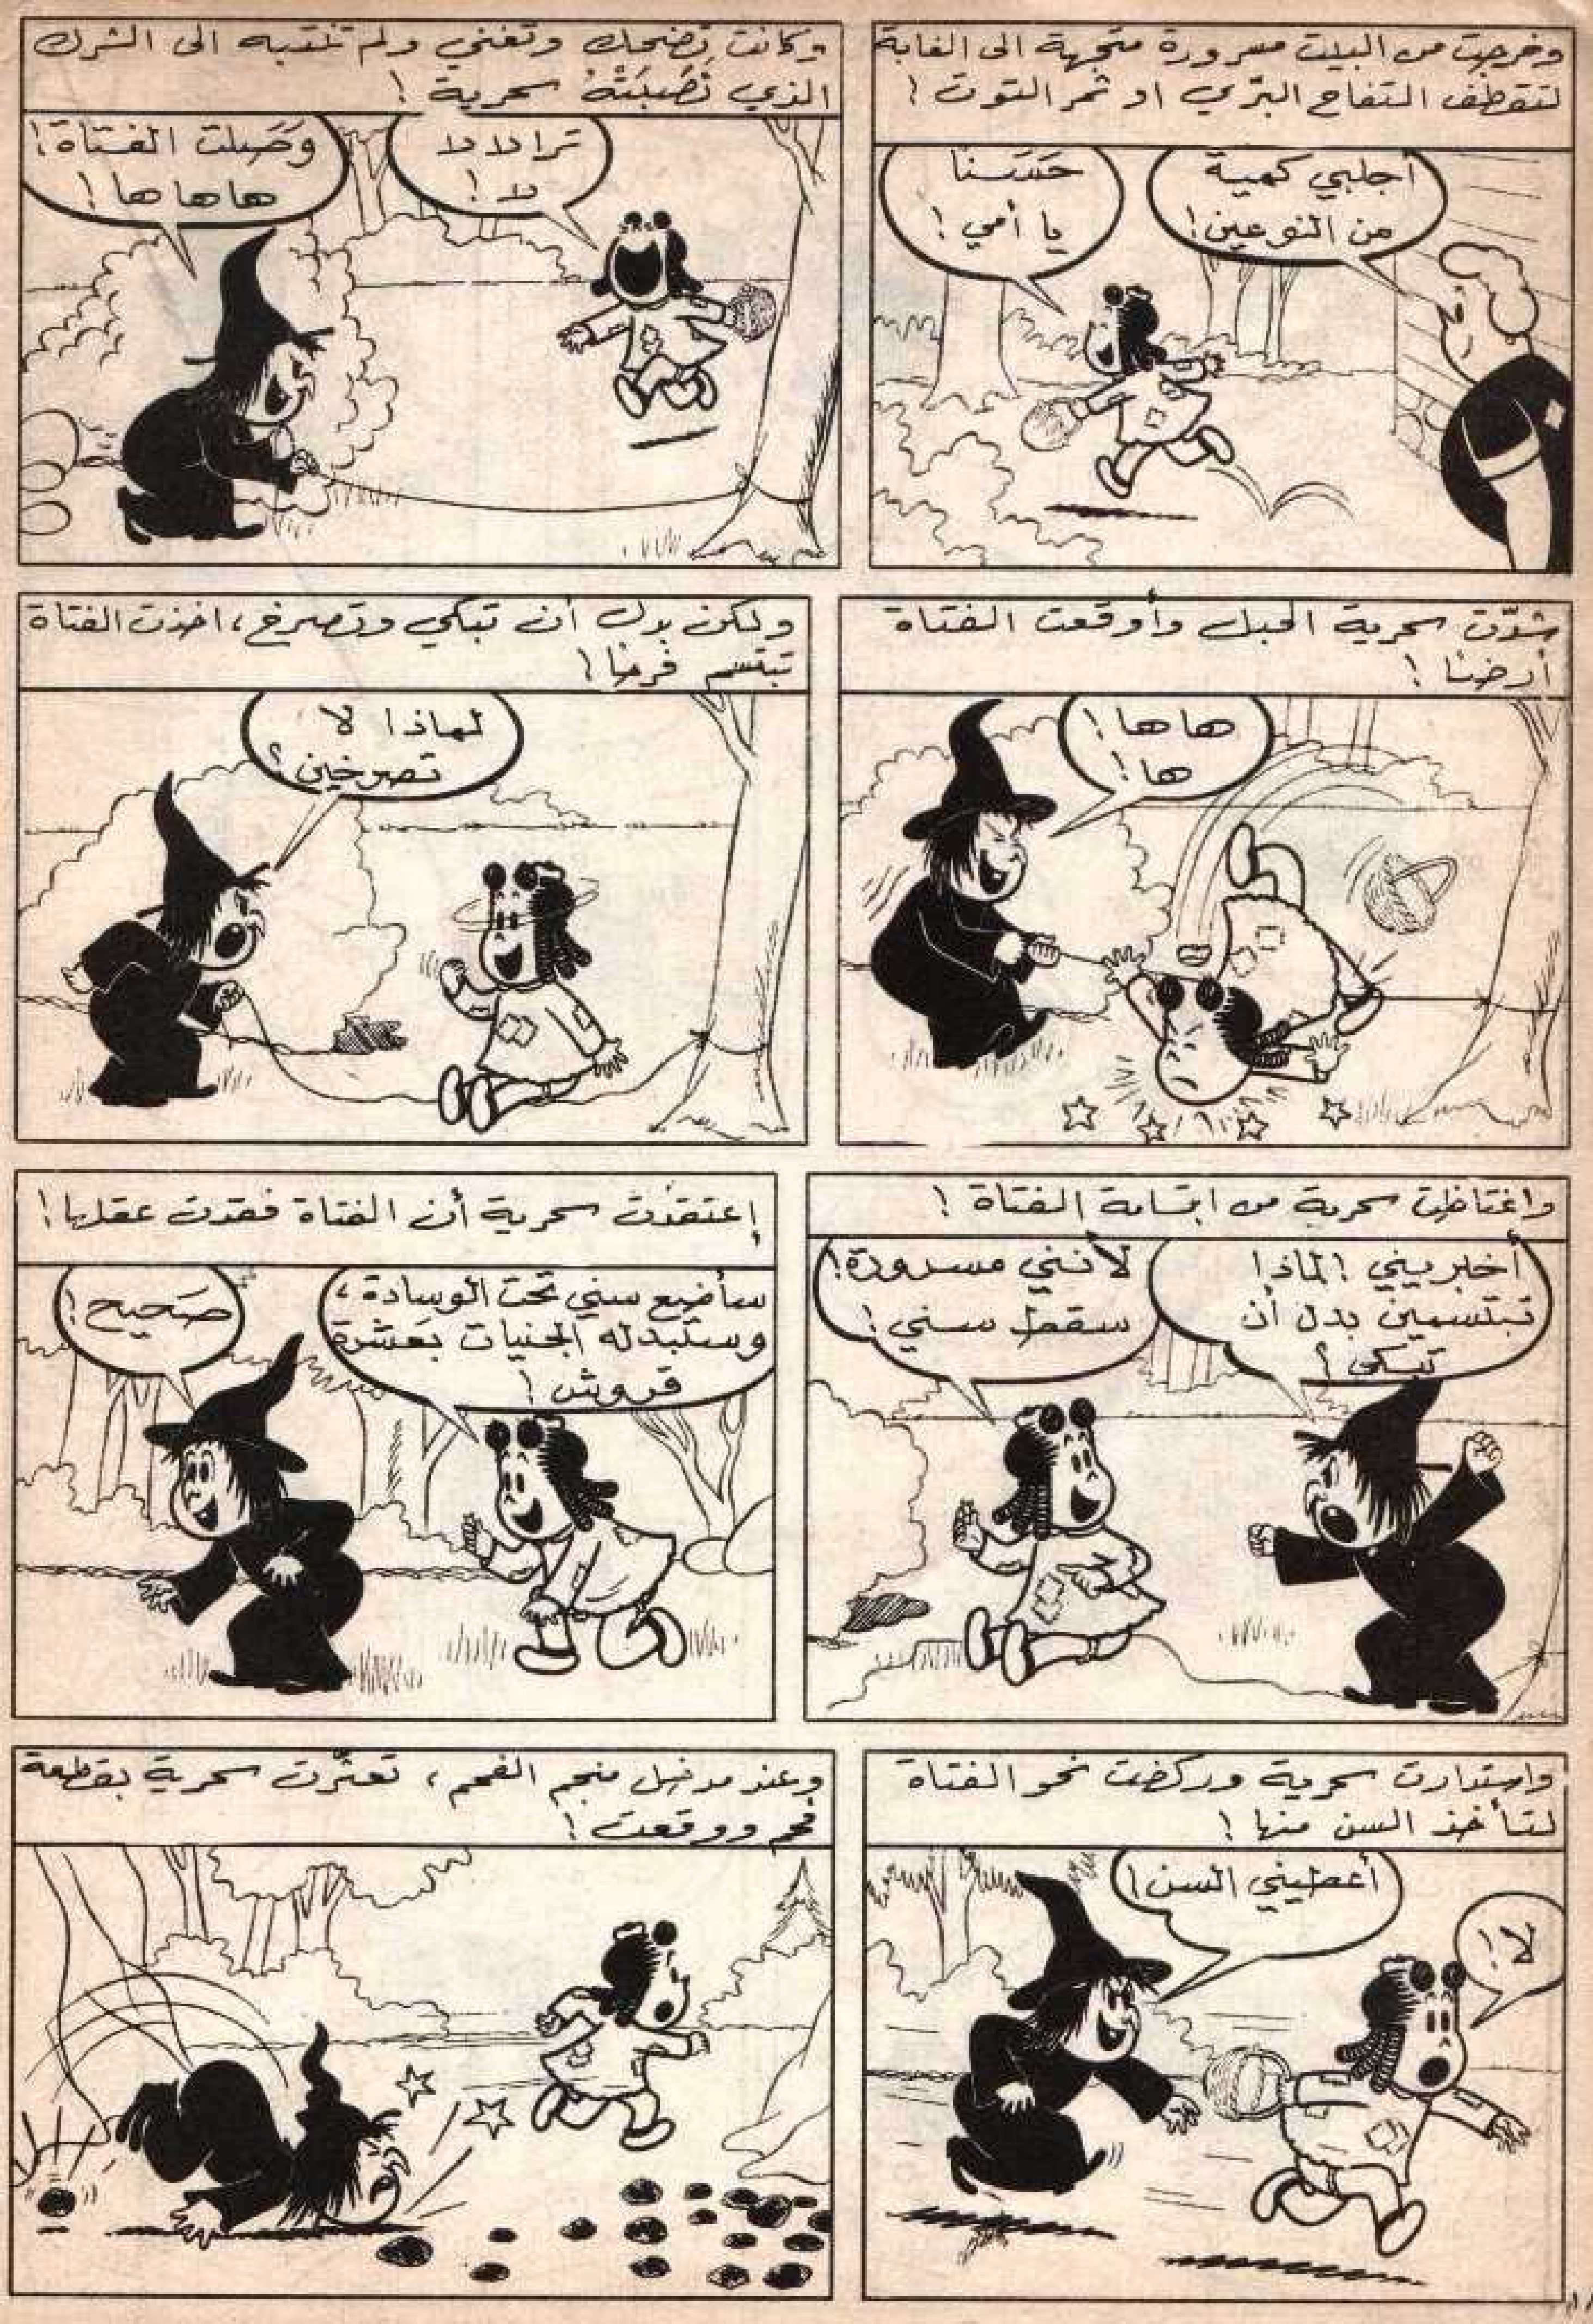 وخرجت من البيت مسرورة متجهة الى الغابة
لتقطف التفاح البرّي او ثمر التوت !
أجلبي كمية
من النوعين !
حَسَنا
يا أمي !
وكانت تضحك وتغني ولم تنتبه الى الشرك
الذي نَصَبَتْهُ سحرية !
ترا لا لا
لا !
وَصَلت الفتاة !
ها ها ها !
شدّت سحرية الحبل وأوقعت الفتاة
أرضا !
ها ها !
ها !
ولكن بدل أن تبكي وتصرخ ، اخذت الفتاة
تبتسم فرحا !
لماذا لا
تصرخين ؟
واغتاظت سحرية من ابتسامة الفتاة !
أخبريني ! لماذا
تبتسمين بدل أن
تبكي ؟
لأنني مسرورة !
سقط سني !
إعتقدت سحرية أن الفتاة فقدت عقلها !
سأضع سني تحت الوسادة ،
وستبدله الجنيات بعشرة
قروش !
صَحيح !
واستدارت سحرية وركضت نحو الفتاة
لتأخذ السن منها !
أعطيني السن !
لا !
وعند مدخل منجم الفحم ، تعثّرت سحرية بقطعة
فحم ووقعت !